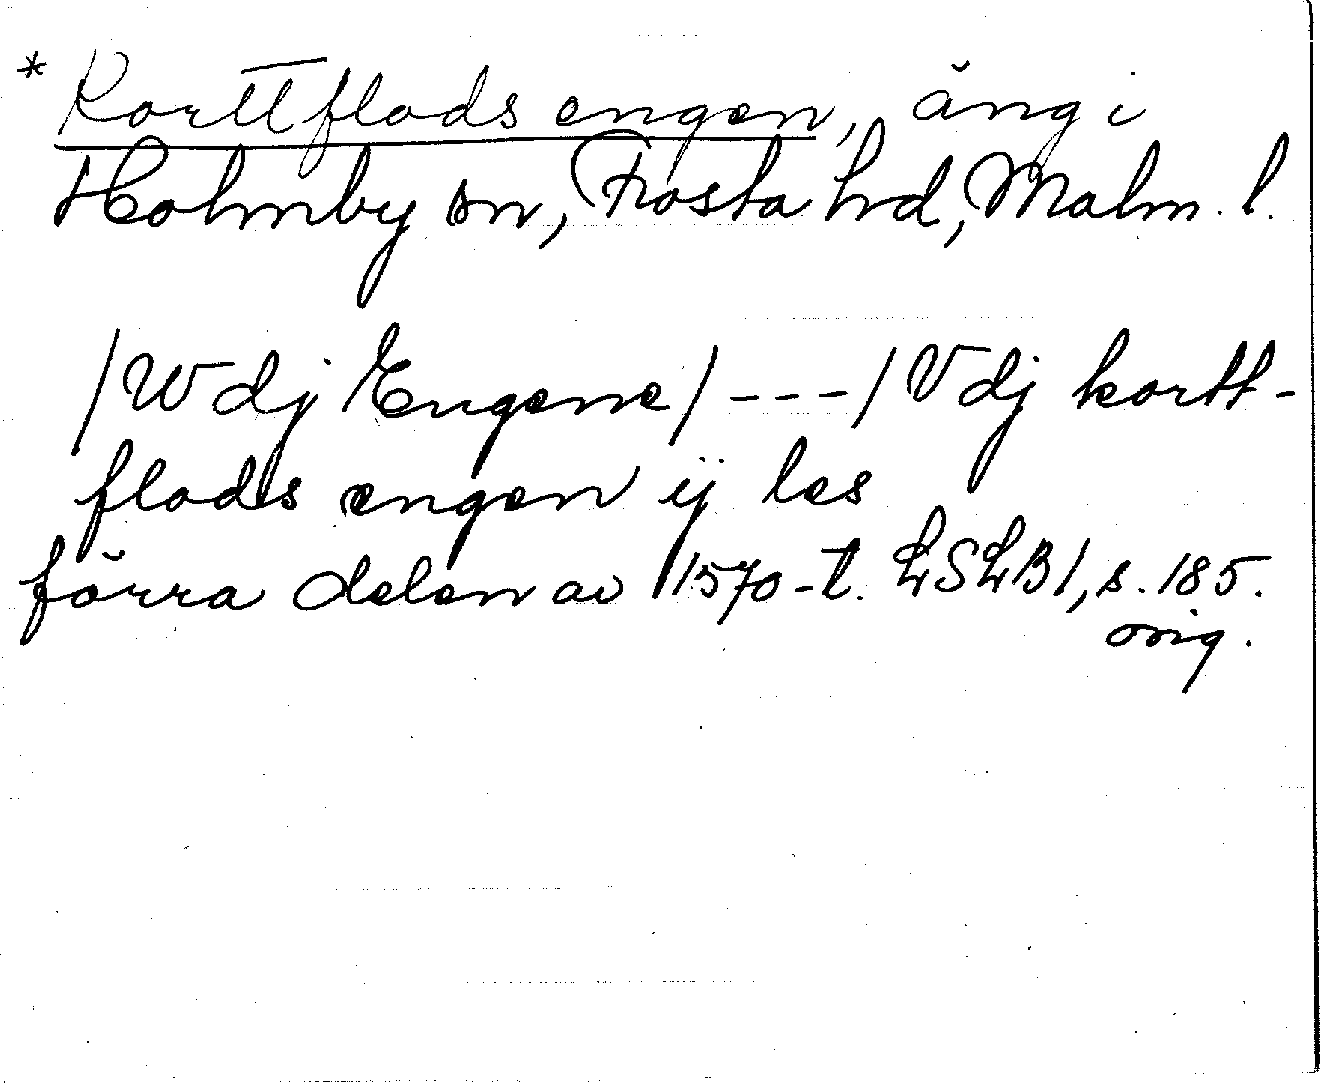 * Korttflods engen, äng i
Holmby sn, Frosta hd, Malm. l.
/Wdj Engene/ - - - / Vdj kortt-
flods engen ij les
förra delen av 1570-t. LSLB1, s. 185.
orig.